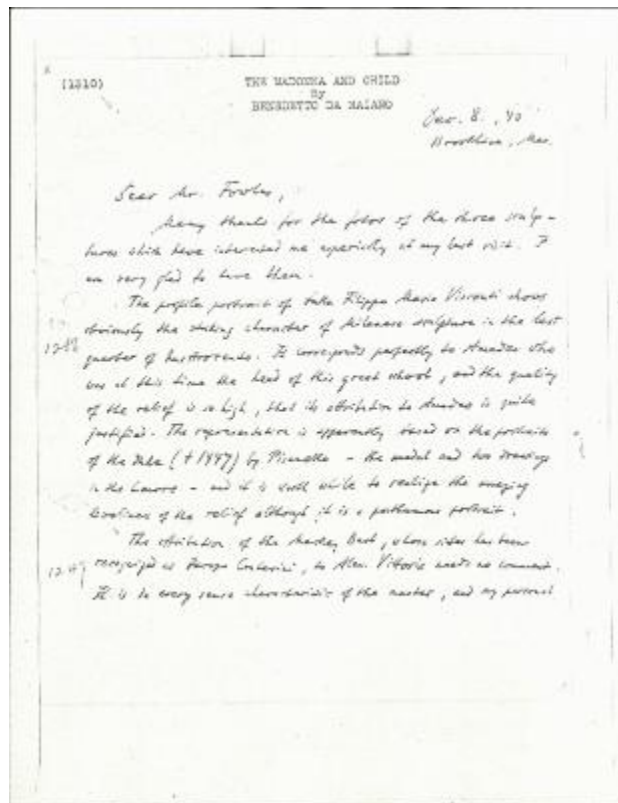 (1310)
THE MADONNA AND CHILD
By
BENEDETTO DA MAIANO
8., 40
Brookline, Mas.
Dear Mr. Fowles,
Many thanks for the fotos of the three sculp-
tures which have interested me especially at my last visit. I
am very glad to have them.
The profile portrait of Duke Filippo Maria Visconti shows
obviously the striking character of Milanese sculpture in the last
quarter of Quattrocento. It corresponds perfectly to Amadeo who
was at this time the head of this great school, and the quality
of the relief is so high, that its attribution to Amadeo is quite
justified. The representation is apparently based on the portraits
of the Duke († 1447) by Pisanello - the medal and two drawings
in the Louvre - and it is worth while to realize the amazing
liveliness of the relief although it is a posthumous portrait.
The attribution of the Bust, whose sitter has been
recognized as Contarini, to Aless. Vittoria needs no comment.
It is in every sense characteristic of the master, and my personal